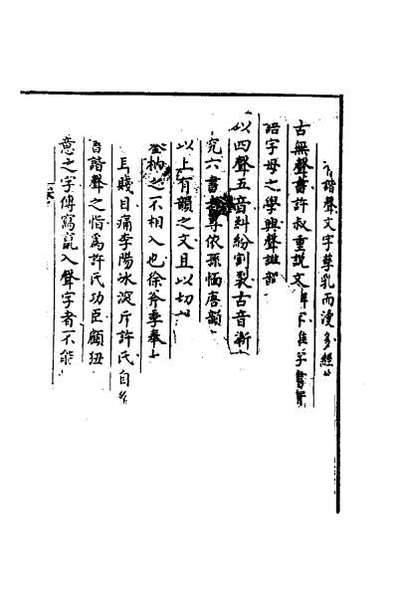 諧聲文字孳乳而浸多經
古無聲書許叔重說文解下隹字書實
語字母之學興聲韻部
以四聲五音糾紛割裂古音漸
究六書者尋依孫愐唐韻
以上有韻之文且以切
枘之不相入也徐斧季奉
耳賤目痛李陽冰淀斤許氏自
諧聲之恉為許氏功臣顧狃
意之字傳寫竄入聲字者一不能